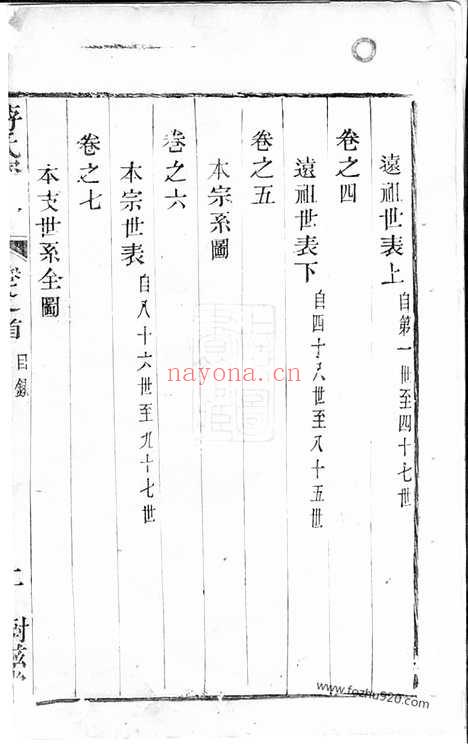 遠祖世表上 自第一世至四十七世
卷之四
遠祖世表下 自四十八世至八十五世
卷之五
本宗系圖
卷之六
本宗世表 自八十六世至九十七世
卷之七
本支世系全圖
卷之首 目錄
nayona.cn
www.fozhu920.com